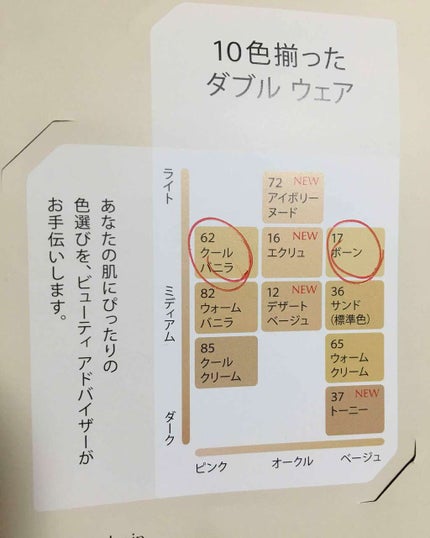 10色揃った
ダブル ウェア
ライト
72 NEW
アイボリー
ヌード
62
クール
バニラ
16 NEW
エクリュ
17
ボーン
ミディアム
82
ウォーム
バニラ
12 NEW
デザート
ベージュ
36
サンド
(標準色)
85
クール
クリーム
65
ウォーム
クリーム
37 NEW
トーニー
ダーク
ピンク
オークル
ベージュ
あなたの肌にぴったりの
色選びを、ビューティ アドバイザーが
お手伝いします。